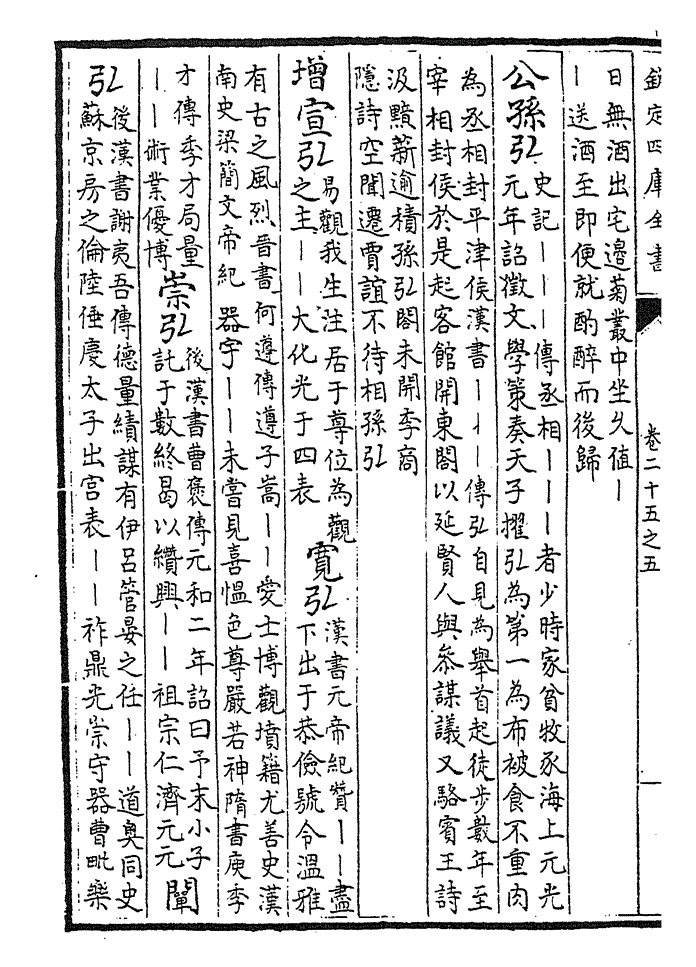 欽定四庫全書
卷二十五之五
日無酒出宅邊菊叢中坐久值丨
丨送酒至即便就酌醉而後歸
公孫弘
史記丨丨丨傳丞相丨丨丨者少時家貧牧豕海上元光
元年詔徵文學策奏天子擢弘為第一為布被食不重肉
為丞相封平津侯漢書丨丨丨傳弘自見為舉首起徒步數年至
宰相封侯於是起客館開東閣以延賢人與參謀議又駱賓王詩
汲黯薪逾積孫弘閣未開李商
隱詩空聞遷賈誼不待相孫弘
增宣弘
易觀我生注居于尊位為觀
之主丨丨大化光于四表
寬弘
漢書元帝紀贊丨丨盡
下出于恭儉號令溫雅
有古之風烈晉書何遵傳遵子嵩丨丨愛士博觀墳籍尤善史漢
南史梁簡文帝紀 器宇丨丨未嘗見喜慍色尊嚴若神隋書庾季
才傳季才局量
丨丨術業優博
崇弘
後漢書曹褒傳元和二年詔曰予末小子
託于數終曷以纘興丨丨祖宗仁濟元元
闡
弘
後漢書謝夷吾傳德量績謀有伊呂管晏之任丨丨道奧同史
蘇京房之倫陸倕慶太子出宮表丨丨祚鼎光崇守器曹毗樂